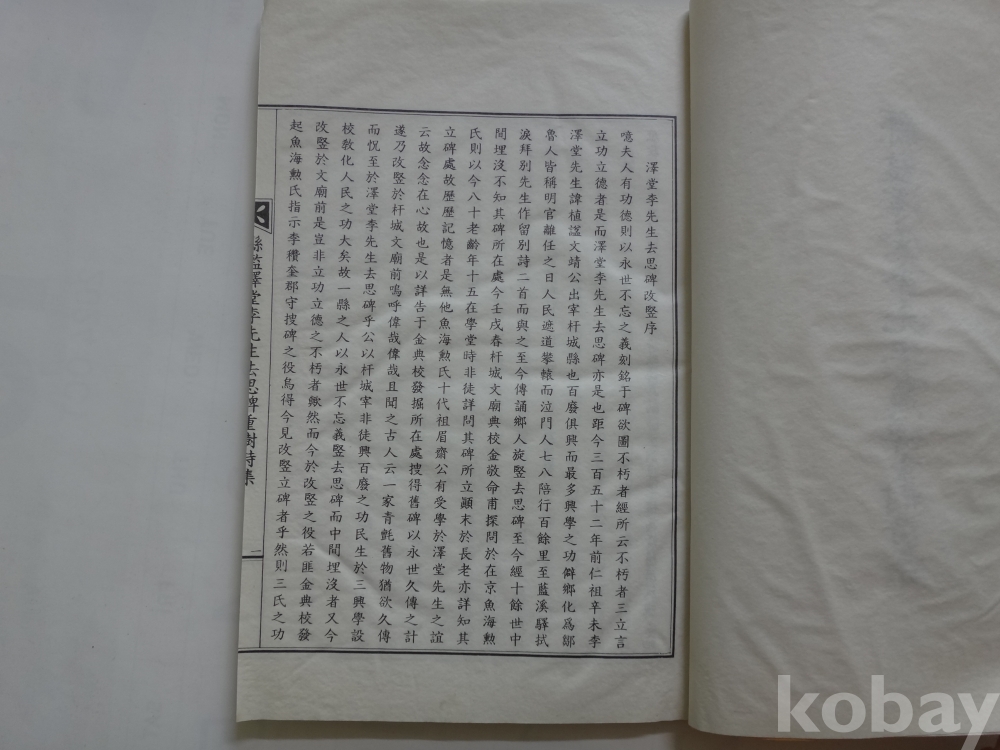 澤堂李先生去思碑改竪序
噫夫人有功德則以永世不忘之義刻銘于碑欲圖不朽者經所云不朽者三立言
立功立德者是而澤堂李先生去思碑亦是也距今三百五十二年前仁祖辛未李
澤堂先生諱植諡文靖公出宰杆城縣也百廢俱興而最多興學之功僻鄉化爲鄒
魯人皆稱明官離任之日人民遮道攀轅而泣門人七八陪行百餘里至藍溪驛拭
淚拜別先生作留別詩二首而與之至今傳誦鄉人旋竪去思碑至今經十餘世中
間埋沒不知其碑所在處今壬戊春杆城文廟典校金敬命甫探問於在京魚海勲
氏則以今八十老齡年十五在學堂時非徒詳問其碑所立顚末於長老亦詳知其
立碑處故歷歷記憶者是無他魚海勲氏十代祖眉齋公有受學於澤堂先生之誼
云故念念在心故也是以詳告于金典校發掘所在處搜得舊碑以永世久傳之計
遂乃改竪於杆城文廟前嗚呼偉哉偉哉且聞之古人云一家青氈舊物猶欲久傳
而況至於澤堂李先生去思碑乎公以杆城宰非徒興百廢之功民生於三興學設
校敎化人民之功大矣故一縣之人以永世不忘義竪去思碑而中間埋沒者又今
改竪於文廟前是豈非立功立德之不朽者歟然而今於改竪之役若匪金典校發
起魚海勲氏指示李欑奎郡守搜碑之役烏得今見改竪立碑者乎然則三氏之功
縣監澤堂李先生去思碑重樹詩集
一
kobay